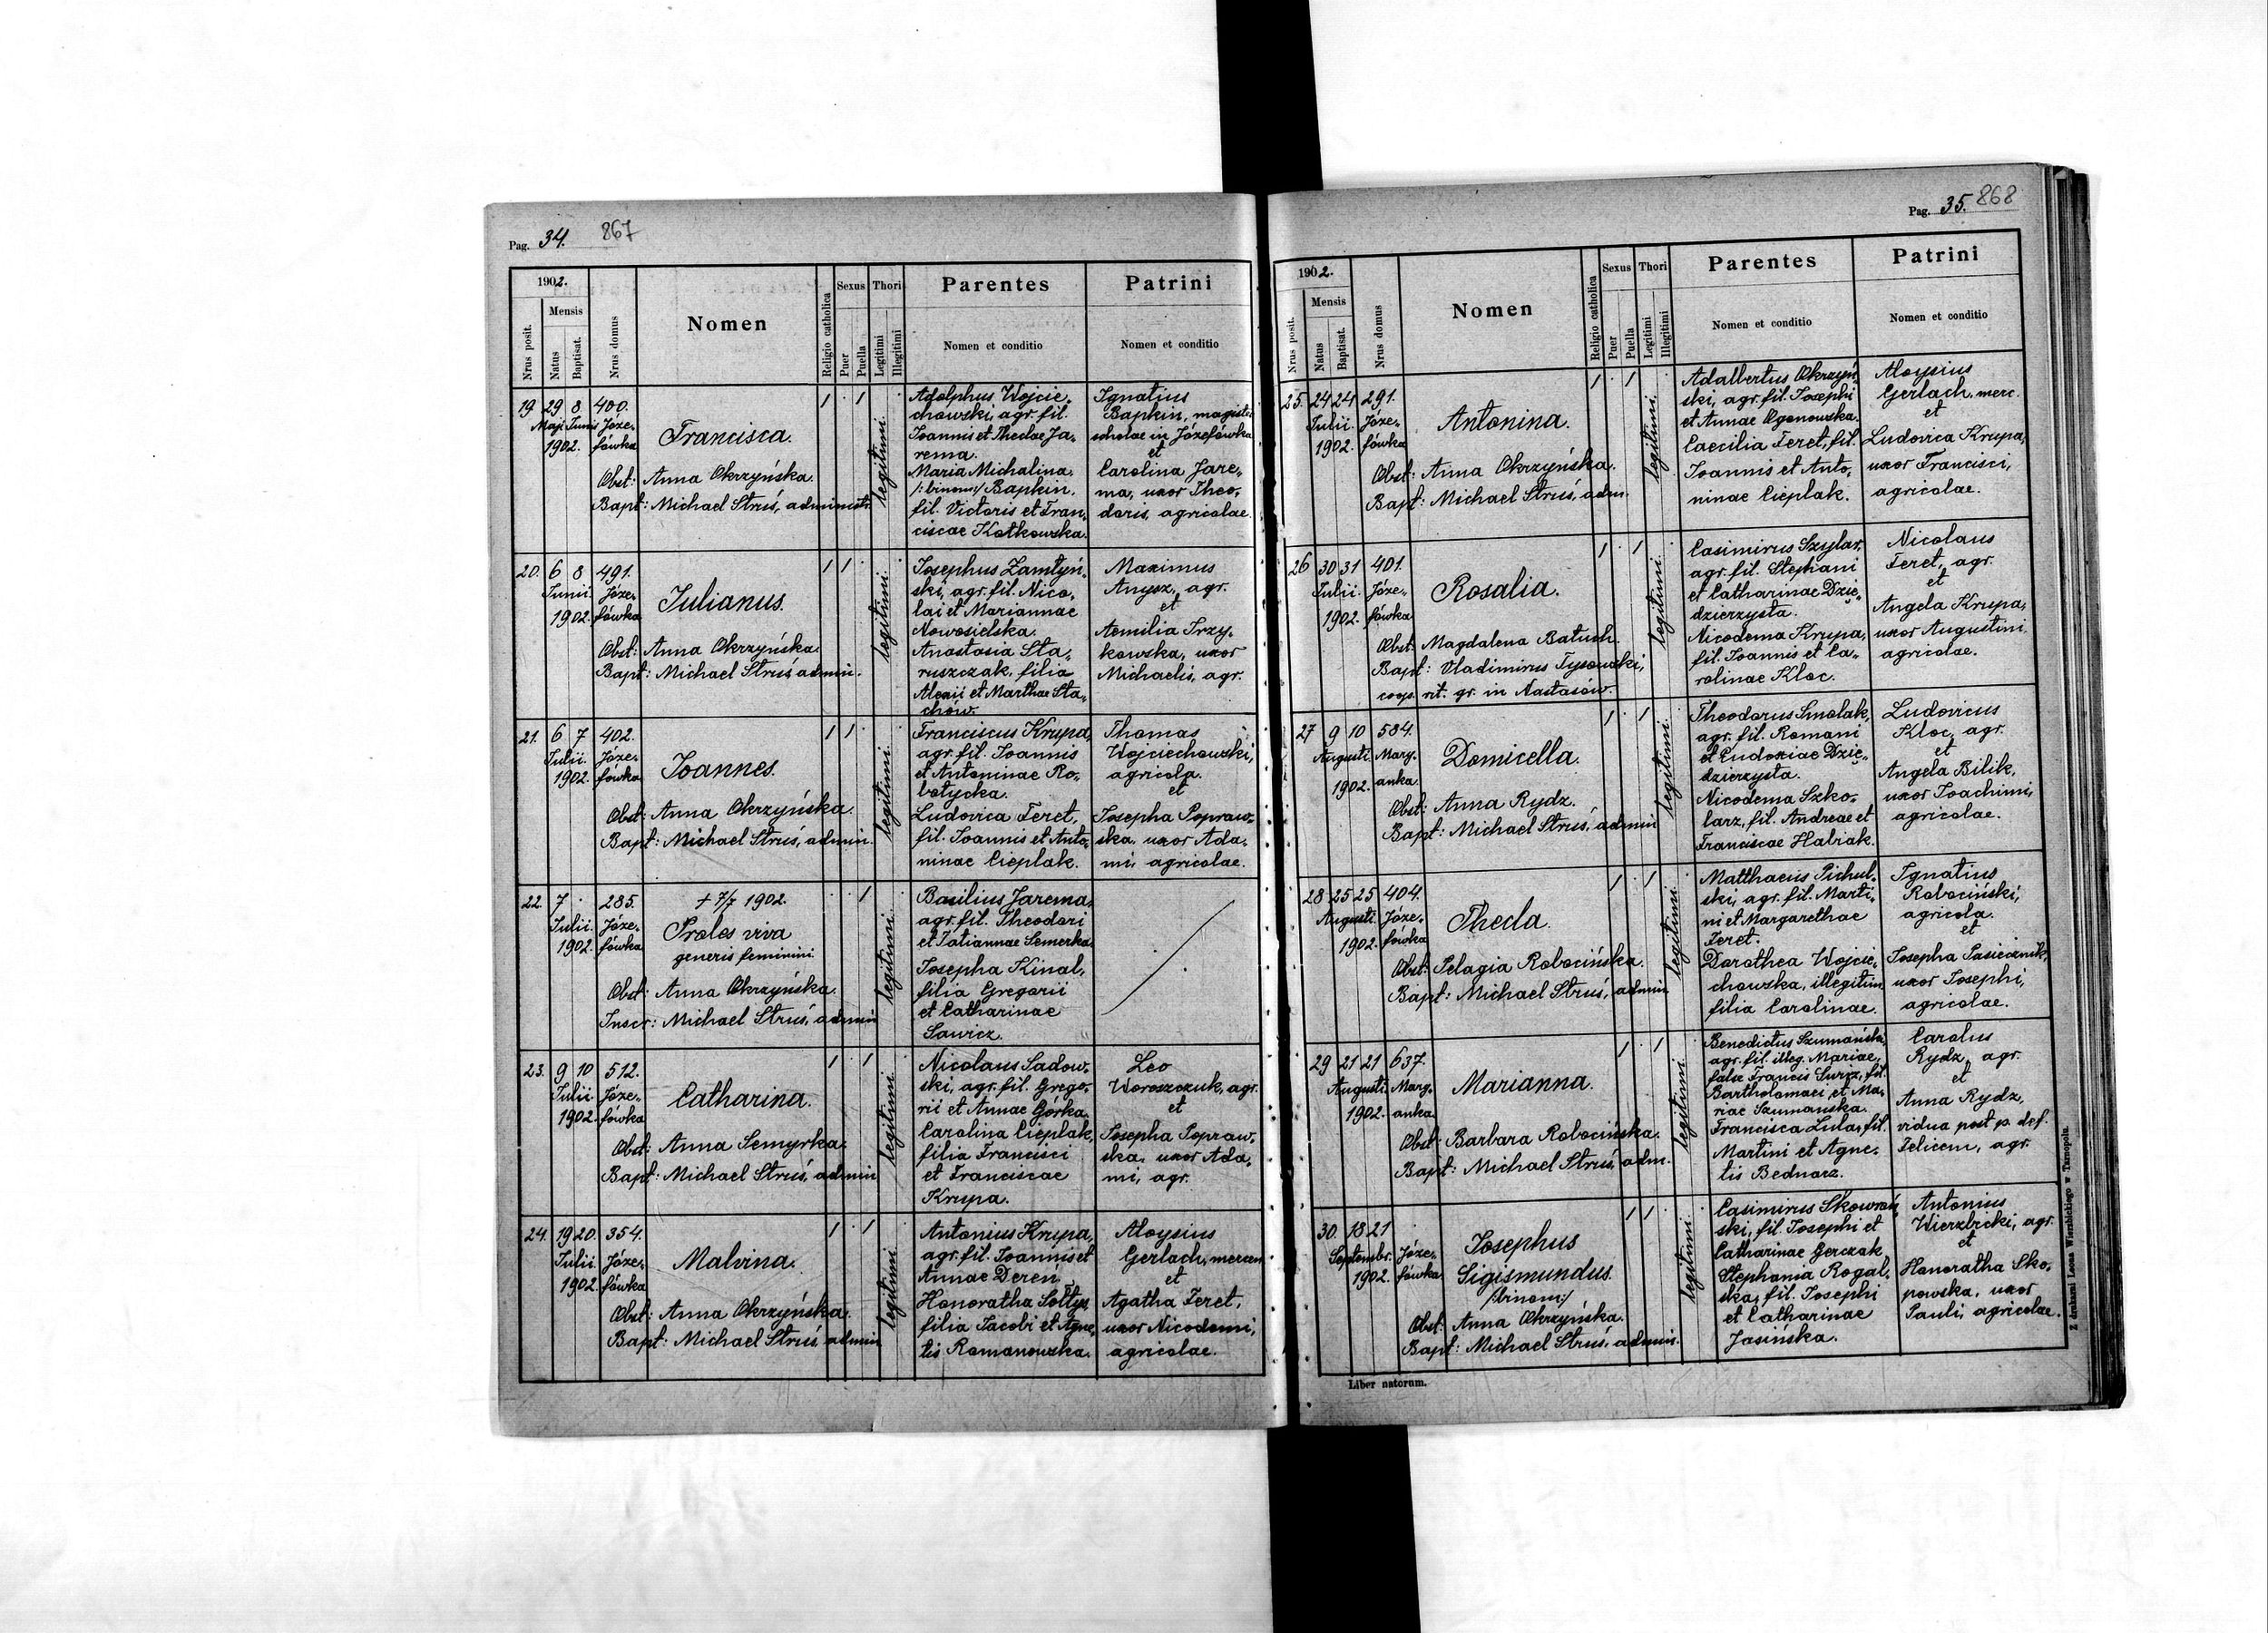 Pag. 34. 867
1902.
Nrus posit.
Mensis
Natus
Baptisat.
Nrus domus
Nomen
Religio catholica
Sexus
Puer
Puella
Thori
Legitimi
Illegitimi
Parentes
Nomen et conditio
Patrini
Nomen et conditio
19 29 8 400.
Maji Junii Józe-
1902. fówka
Francisca.
Obst: Anna Okrzyńska.
Bapt: Michael Struś, administr.
legitimi
Adolphus Wojcie-
chowski, agr. fil.
Joannis et Theclae Ja-
rema.
Maria Michalina
/:binom:/ Bapkin,
fil. Victoris et Fran-
ciscae Kotkowska.
Ignatius
Bapkin, magister
scholae in Józefówka
et
Carolina Jare-
ma, uxor Theo-
doris, agricolae.
20. 6 8 491.
Junii. Józe-
1902. fówka
Julianus.
Obst: Anna Okrzyńska.
Bapt: Michael Struś admin.
legitimi
Josephus Zamłyń-
ski, agr. fil. Nico-
lai et Mariannae
Nowosielska.
Anastasia Sta-
ruszczak, filia
Alexii et Marthae Sta-
chów.
Maximus
Anysz, agr.
et
Aemilia Trzy-
kowska, uxor
Michaelis, agr.
21. 6 7 402.
Julii. Józe-
1902. fówka
Joannes.
Obst: Anna Okrzyńska.
Bapt: Michael Struś, admin.
legitimi
Franciscus Krupa,
agr. fil. Joannis
et Antoninae Ro-
botycka.
Ludovica Feret,
fil. Joannis et Anto-
ninae Cieplak.
Thomas
Wojciechowski,
agricola.
et
Josepha Popraw-
ska, uxor Ada-
mi, agricolae.
22. 7 285.
Julii. Józe-
1902. fówka
+ 7/7 1902.
Proles viva
generis feminini.
Obst: Anna Okrzyńska.
Inscr: Michael Struś, admin
legitimi
Basilius Jarema,
agr. fil. Theodori
et Tatiannae Semerka
Josepha Kinal,
filia Gregorii
et Catharinae
Sawicz.
23. 9 10 512.
Julii. Józe-
1902. fówka
Catharina.
Obst: Anna Semyrka.
Bapt: Michael Struś, admin
legitimi
Nicolaus Sadow-
ski, agr. fil. Grego-
rii et Annae Górka.
Carolina Cieplak,
filia Francisci
et Franciscae
Krupa.
Leo
Woroszczuk, agr.
et
Josepha Popraw-
ska, uxor Ada-
mi, agr.
24. 19 20. 354.
Julii. Józe-
1902. fówka
Malvina.
Obst: Anna Okrzyńska.
Bapt: Michael Struś, admin
legitimi
Antonius Krupa,
agr. fil. Joannis et
Annae Dereń.
Honoratha Sołtys,
filia Jacobi et Agne-
tis Romanowska.
Aloysius
Gerlach, mercen
et
Agatha Feret,
uxor Nicodemi,
agricolae.
Pag. 35. 868
1902.
Nrus posit.
Mensis
Natus
Baptisat.
Nrus domus
Nomen
Religio catholica
Sexus
Puer
Puella
Thori
Legitimi
Illegitimi
Parentes
Nomen et conditio
Patrini
Nomen et conditio
25. 24 24 291.
Julii. Józe-
1902. fówka
Antonina.
Obst: Anna Okrzyńska.
Bapt: Michael Struś, adm.
legitimi
Adalbertus Okrzyń-
ski, agr. fil. Josephi
et Annae Ogonowska.
Caecilia Feret, fil.
Joannis et Anto-
ninae Cieplak.
Aloysius
Gerlach, merc.
et
Ludovica Krupa,
uxor Francisci,
agricolae.
26 30 31 401.
Julii. Józe-
1902. fówka
Rosalia.
Obst: Magdalena Batuch.
Bapt: Vladimirus Tysowski,
coop. rit. gr. in Nastasów.
legitimi
Casimirus Szylar,
agr. fil. Stephani
et Catharinae Dzie-
dzierzysta.
Nicodema Krupa,
fil. Joannis et Ca-
rolinae Kloc.
Nicolaus
Feret, agr.
et
Angela Krupa,
uxor Augustini
agricolae.
27 9 10 584.
Augusti. Marg-
1902. anka.
Domicella.
Obst: Anna Rydz.
Bapt: Michael Struś, admin
legitimi
Theodorus Smolak,
agr. fil. Romani
et Eudoxiae Dzie-
dzierzysta.
Nicodema Szko-
larz, fil. Andreae et
Franciscae Habiak.
Ludovicus
Kloc, agr.
et
Angela Bilik,
uxor Joachimi,
agricolae.
28 25 25 404.
Augusti. Józe-
1902. fówka
Thecla.
Obst: Pelagia Robocińska.
Bapt: Michael Struś, admin
legitimi
Matthaeus Pichul-
ski, agr. fil. Marti-
ni et Margarethae
Feret.
Dorothea Wojcie-
chowska, illegitim
filia Carolinae.
Ignatius
Robociński,
agricola.
et
Josepha Pasiecznik,
uxor Josephi,
agricolae.
29 21 21 637.
Augusti. Marg-
1902. anka.
Marianna.
Obst: Barbara Robocińska.
Bapt: Michael Struś, adm.
legitimi
Benedictus Szumański,
agr. fil. illeg. Mariae,
false Francis Surix, fil.
Bartholomaei et Ma-
riae Szumańska.
Francisca Lula, fil.
Martini et Agne-
tis Bednarz.
Carolus
Rydz, agr.
et
Anna Rydz,
vidua post p. def.
Felicem, agr.
30. 18 21
Septembr. Józe-
1902. fówka
Josephus
Sigismundus.
/:binom:/
Obst: Anna Okrzyńska.
Bapt: Michael Struś, admin.
legitimi
Casimirus Skowroń-
ski, fil. Josephi et
Catharinae Gerczak
Stephania Rogal-
ska, fil. Josephi
et Catharinae
Jasińska.
Antonius
Wierzbicki, agr.
et
Honoratha Sko-
powska, uxor
Pauli, agricolae.
Liber natorum.
Z drukarni Leona Wierzbickiego w Tarnopolu.